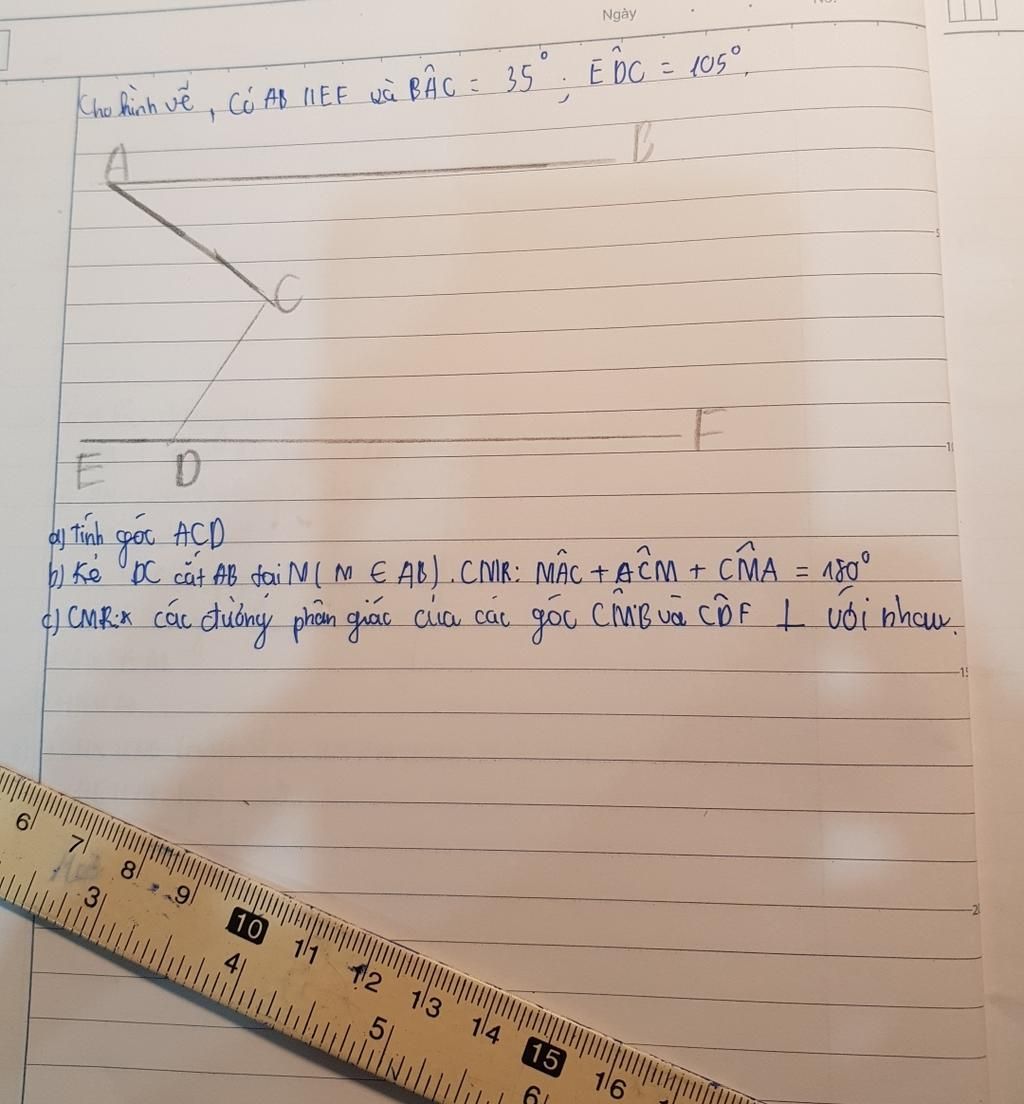 Ngày
Cho hình vẽ, Có AB // EF và BÂC = 35°; ED̂C = 105°.
A
B
C
E
D
F
a) Tính góc ACD
b) Kẻ DC cắt AB tại M (M ∈ AB). CMR: MÂC + AĈM + CM̂A = 180°
c) CMR: x các đường phân giác của các góc CM̂B và CD̂F ⊥ với nhau.
5
10
15
6 7 8 9 10 11 12 13 14 15 16
3 4 5 6